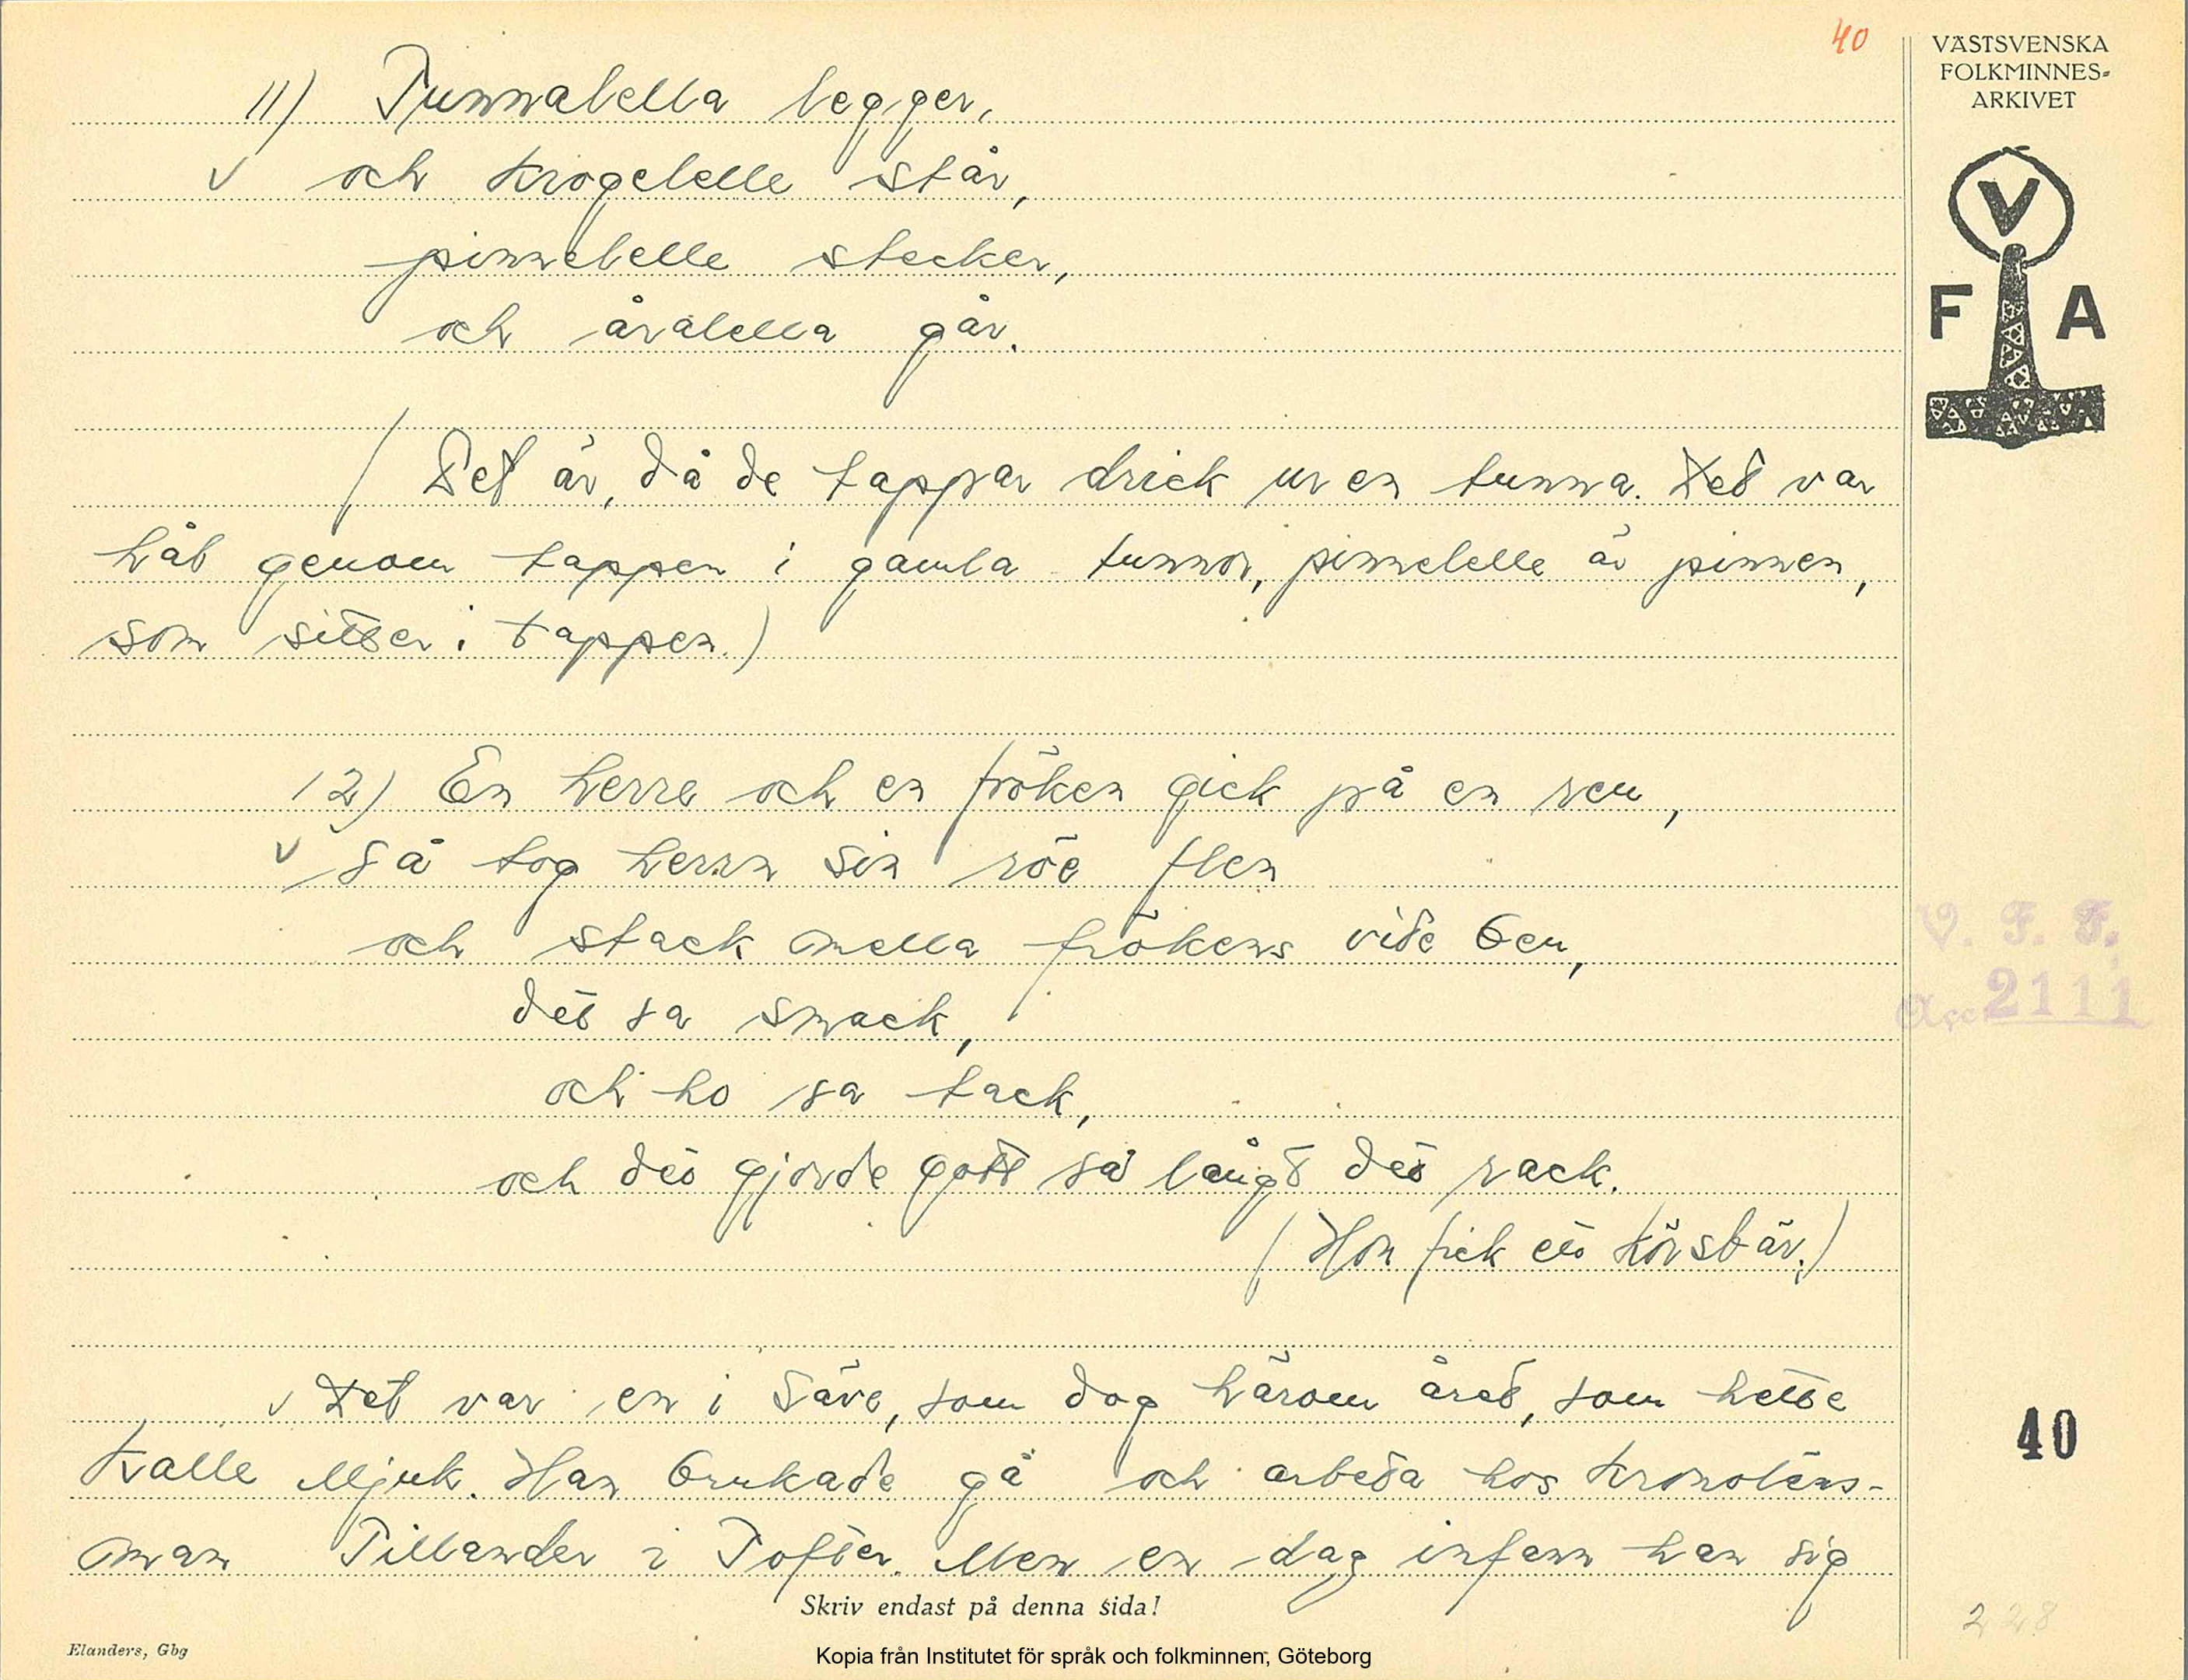 40
VÄSTSVENSKA
FOLKMINNES-
ARKIVET
V
F A
11) Tunnalella legger,
v och krogelelle står,
pinnelelle stecker,
och årälella går.
(Det är, då de tappar drick ur en tunna. Det var
hål genom tappen i gamla tunnor, pinnelelle är pinnen,
som sitter i tappen.)
12) En herre och en fröken gick på en ren,
v så tog herrn sin röe flen
och stack mella frökens vide ben,
det sa smack,
och ho sa tack,
och det gjorde gott så långt det rack.
(Hon fick ett körsbär.)
v Det var en i Säve, som dog härom året, som hette
Kalle Mjuk. Han brukade gå och arbeta hos kronoläns-
man Tillander i Tofter. Men en dag infann han sig
V. F. F.
Acc 2111
40
228
Skriv endast på denna sida!
Elanders, Gbg
Kopia från Institutet för språk och folkminnen, Göteborg